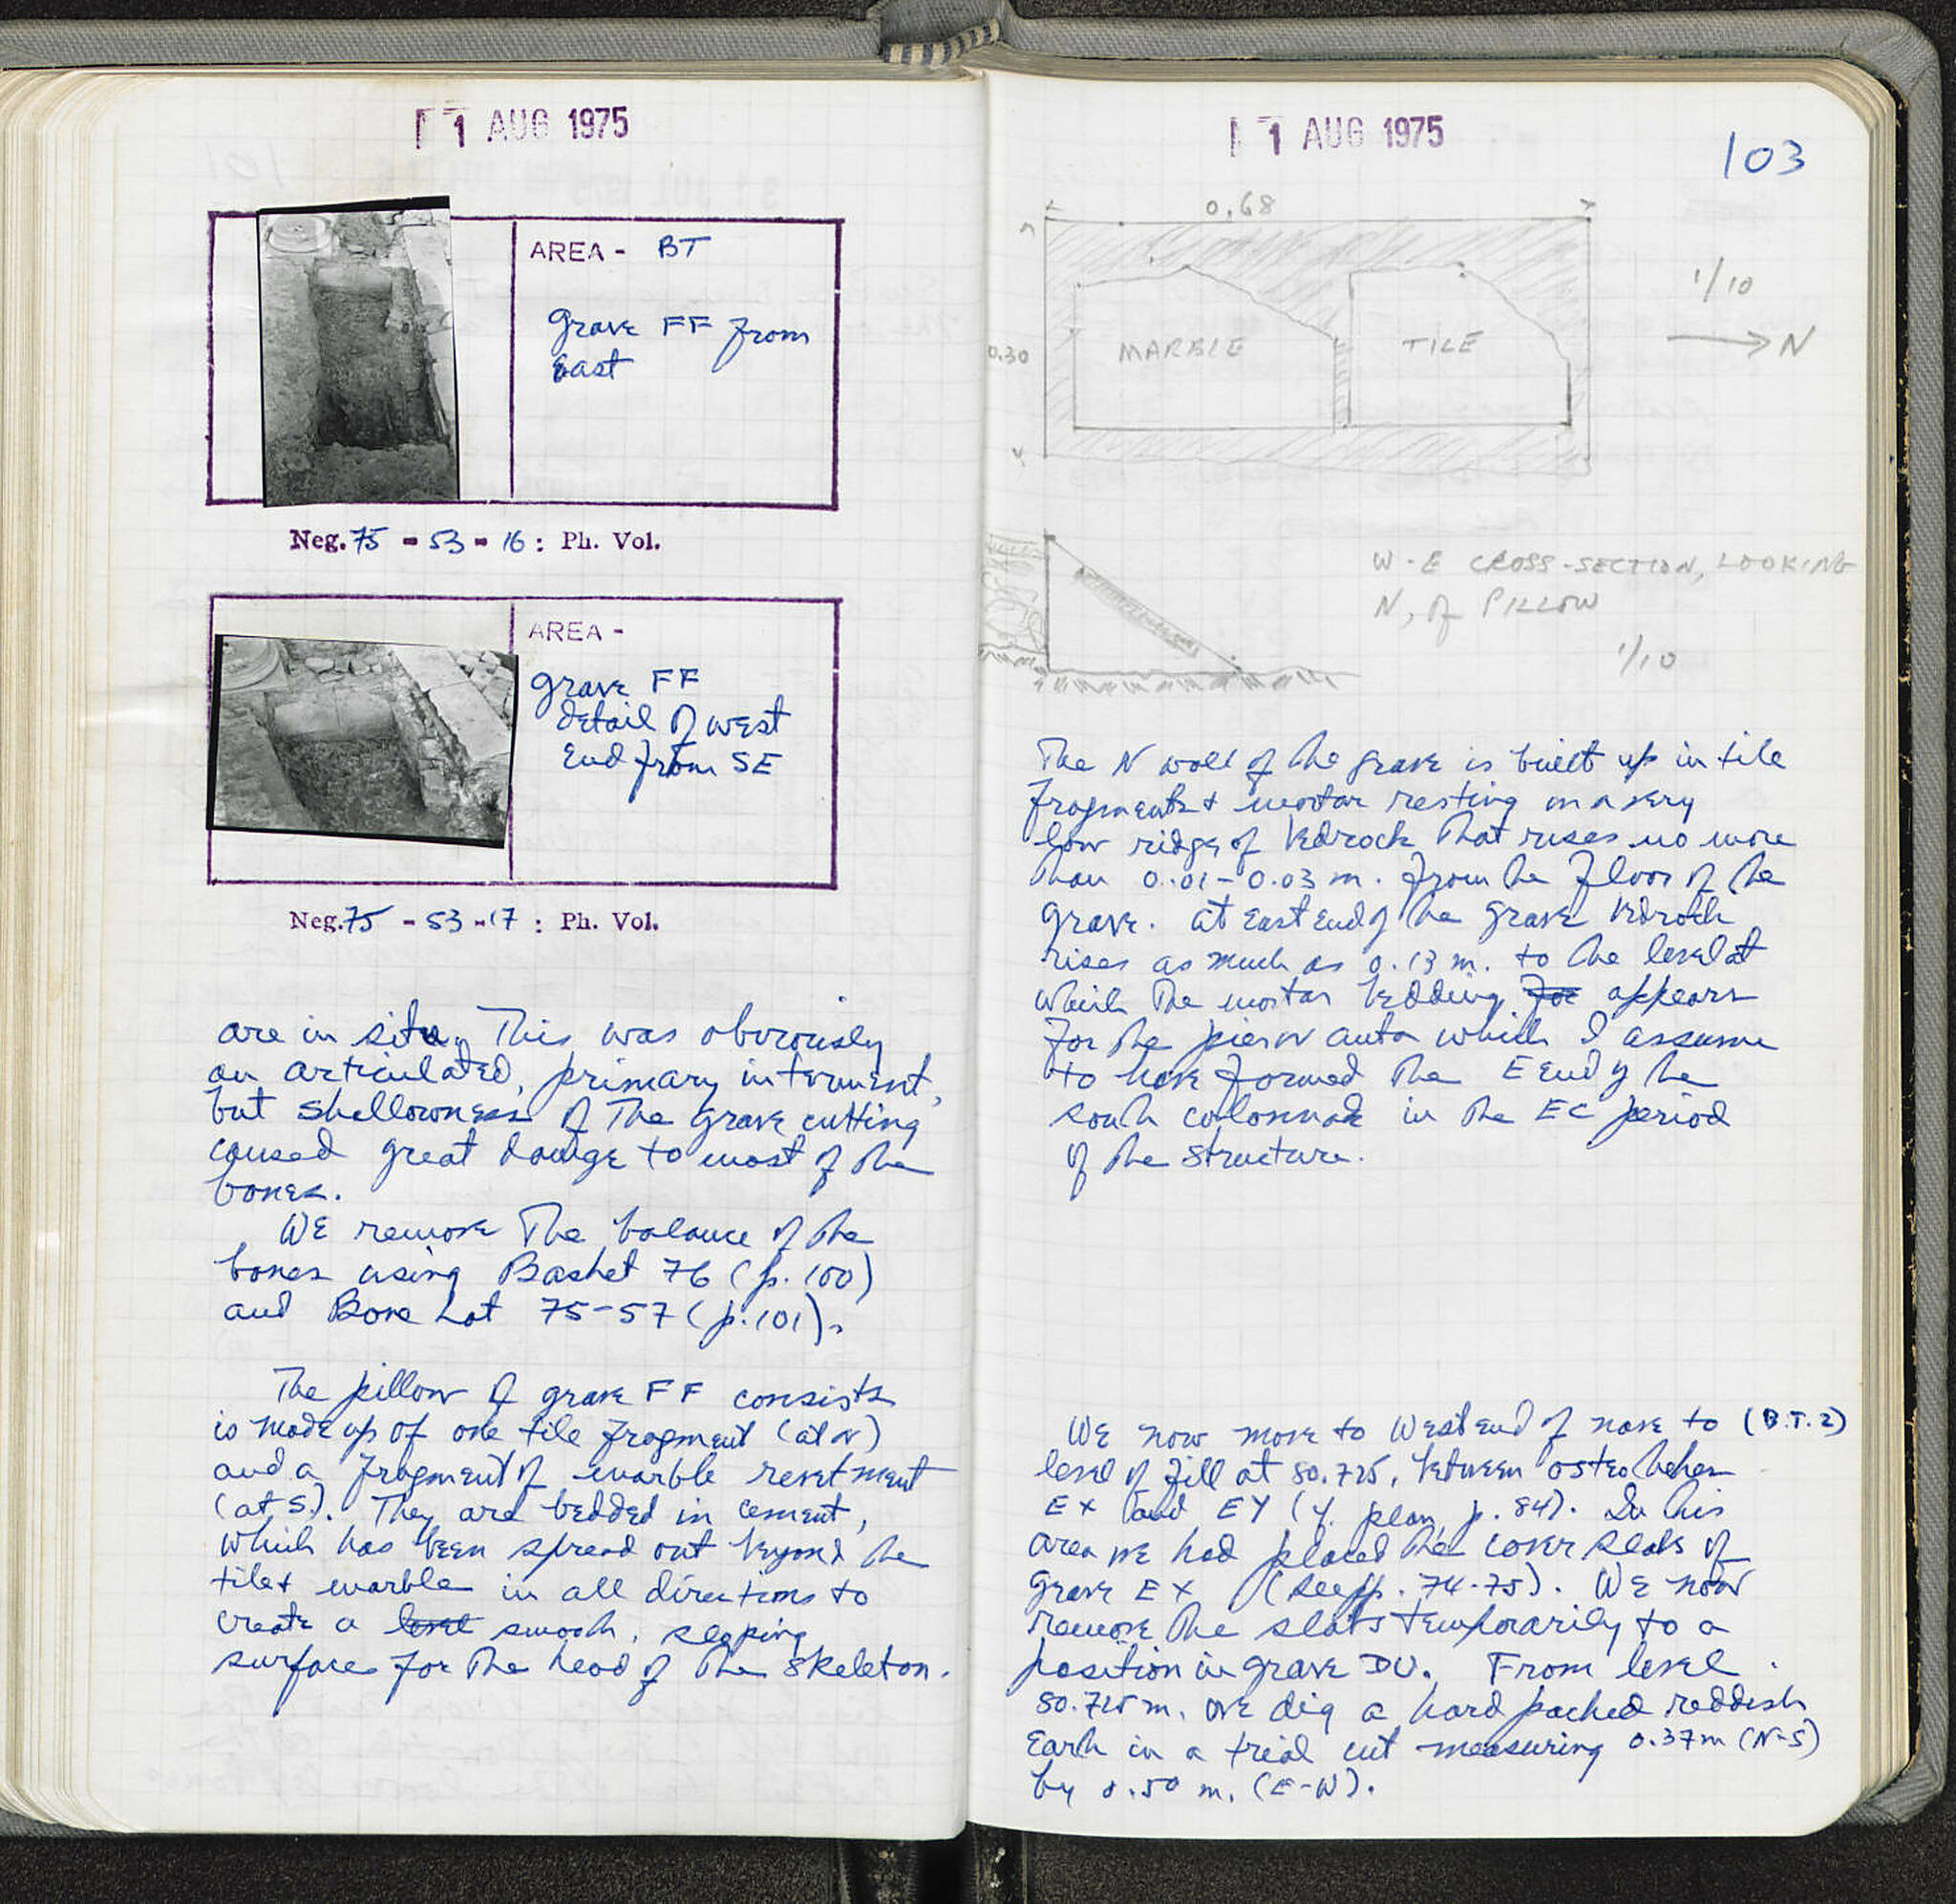 1 AUG 1975
AREA - BT
Grave FF from
East
Neg. 75 - 53 - 16 : Ph. Vol.
AREA -
Grave FF
detail of west
End from SE
Neg. 75 - 53 - 17 : Ph. Vol.
are in situ. This was obviously
an articulated, primary interment,
but shallowness of the grave cutting
caused great damage to most of the
bones.
We remove the balance of the
bones using Basket 76 (p. 100)
and Bone Lot 75-57 (p. 101).
The pillow of grave FF consists
is made up of one tile fragment (at N)
and a fragment of marble revetment
(at S). They are bedded in cement,
which has been spread out beyond the
tile + marble in all directions to
create a level smooth, sloping
surface for the head of the skeleton.
1 AUG 1975
103
0.68
1/10
0.30
MARBLE
TILE
N
W-E CROSS-SECTION, LOOKING
N, of PILLOW
1/10
The N wall of the grave is built up in tile
fragments + mortar resting on a very
low ridge of bedrock that rises no more
than 0.01-0.03 m. from the floor of the
grave. At east end of the grave bedrock
rises as much as 0.13 m. to the level at
which the mortar bedding for appears
for the pier or anta which I assume
to have formed the E end of the
south colonnade in the EC period
of the structure.
We now move to West end of nave to (B.T. 2)
level of fill at 80.725, between osteothekes
EX and EY (cf. plan p. 84). In this
area we had placed the cover slabs of
Grave EX (see pp. 74-75). We now
remove the slabs temporarily to a
position in grave DU. From level
80.725 m. we dig a hard packed reddish
Earth in a trial cut measuring 0.37m (N-S)
by 0.50 m. (E-W).